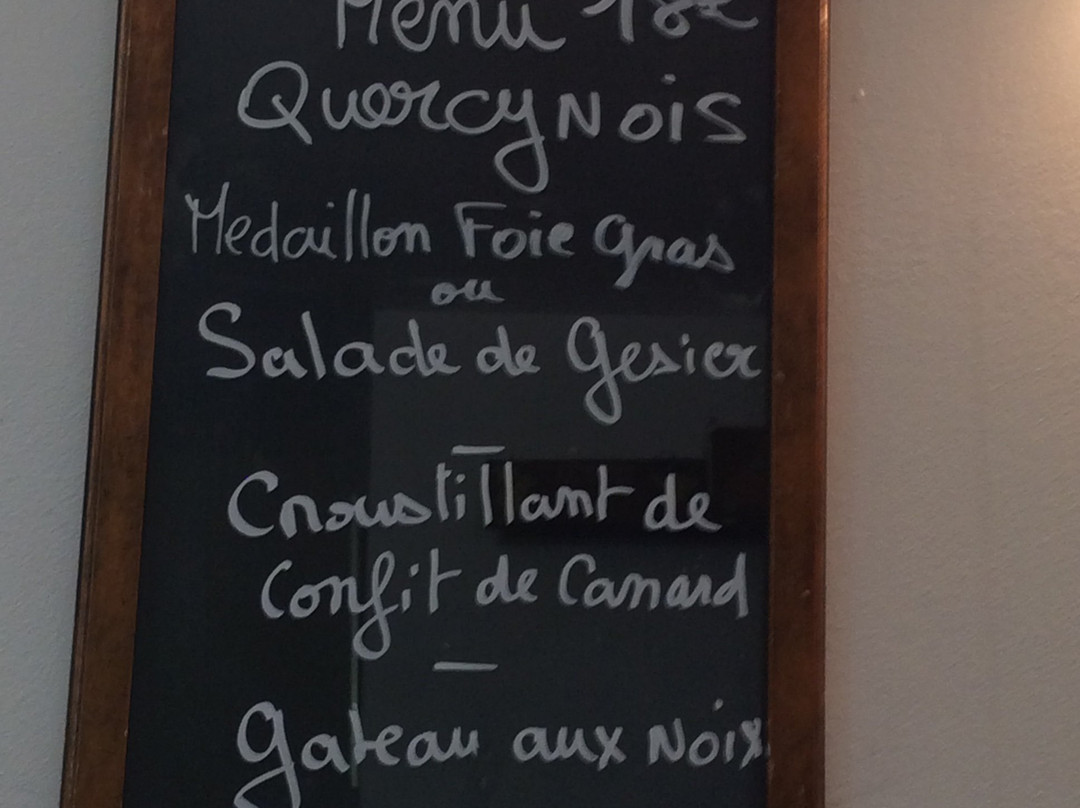 Menu 18€
Quercynois
Medaillon Foie Gras
ou
Salade de Gesier
—
Croustillant de
Confit de Canard
—
Gateau aux Noix